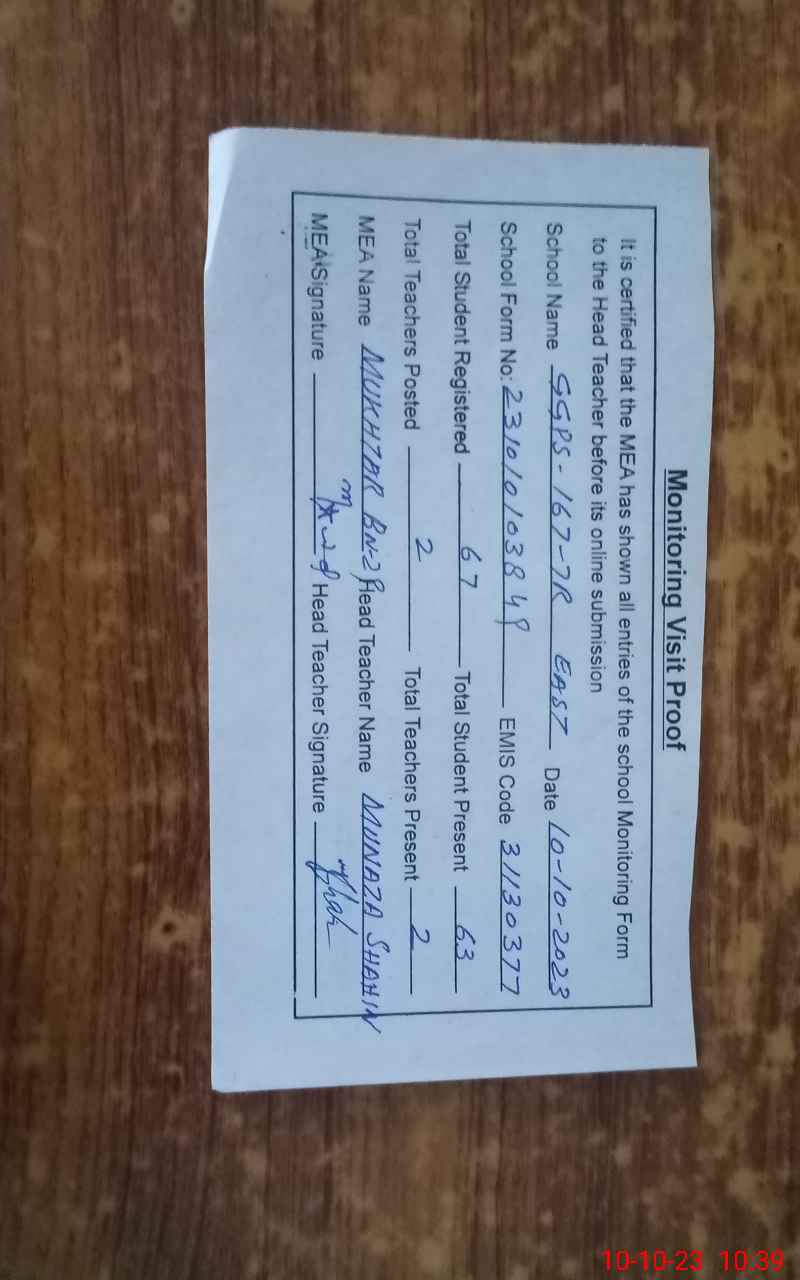 Monitoring Visit Proof
It is certified that the MEA has shown all entries of the school Monitoring Form
to the Head Teacher before its online submission
School Name GGPS-167-7R EAST Date 10-10-2023
School Form No: 231010103849 EMIS Code 31130377
Total Student Registered 67 Total Student Present 63
Total Teachers Posted 2 Total Teachers Present 2
MEA Name MUKHTAR BN-29 Head Teacher Name MUNAZA SHAHIN
MEA Signature Head Teacher Signature
10-10-23 10:39